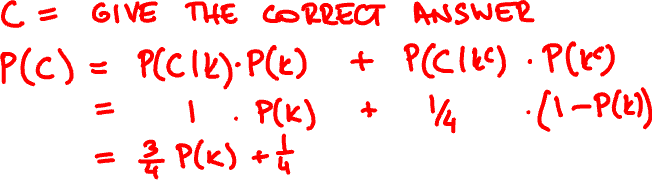 C = GIVE THE CORRECT ANSWER
P(C) = P(C|K)·P(K) + P(C|Kᶜ) · P(Kᶜ)
= 1 . P(K) + 1/4 .(1-P(K))
= 3/4 P(K) + 1/4